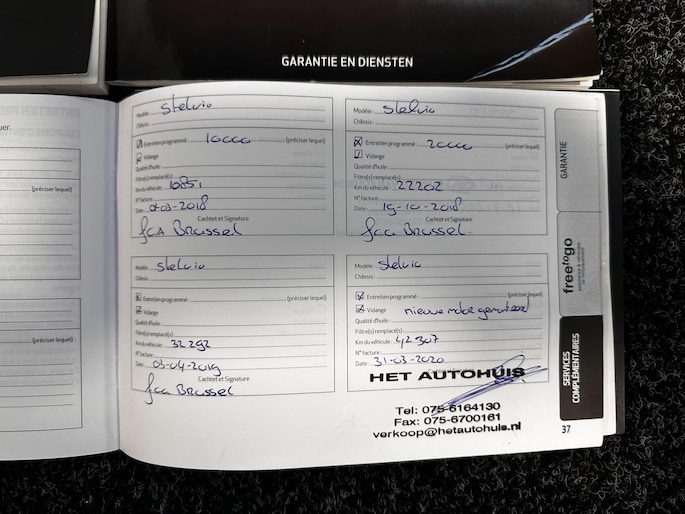 GARANTIE EN DIENSTEN
Modèle: Stelvio
Châssis:
Entretien programmé 10000 (préciser lequel)
Vidange
Qualité d'huile:
Filtre(s) remplacé(s)
Km du véhicule: 10851
N° facture:
Date: 0-03-2018
Cachtet et Signature
fca Brussel
Modèle: Stelvio
Châssis:
Entretien programmé 20000 (préciser lequel)
Vidange
Qualité d'huile:
Filtre(s) remplacé(s)
Km du véhicule: 22202
N° facture:
Date: 19-10-2018
Cachtet et Signature
fca Brussel.
Modèle: Stelvio
Châssis:
Entretien programmé: (préciser lequel)
Vidange
Qualité d'huile:
Filtre(s) remplacé(s)
Km du véhicule: 32292
N° facture:
Date: 03-04-2019
Cachtet et Signature
fca Brussel
Modèle: Stelvio
Châssis:
Entretien programmé: (préciser lequel)
Vidange nieuwe
Qualité d'huile:
Filtre(s) remplacé(s)
Km du véhicule: 42307
N° facture:
Date: 31-03-2020
Cachtet et Signature
HET AUTOHUIS
Tel: 075-6164130
Fax: 075-6700161
verkoop@hetautohuis.nl
37
GARANTIE
freetogo
SERVICES
COMPLÉMENTAIRES
uer.
(préciser lequel)
(préciser lequel)